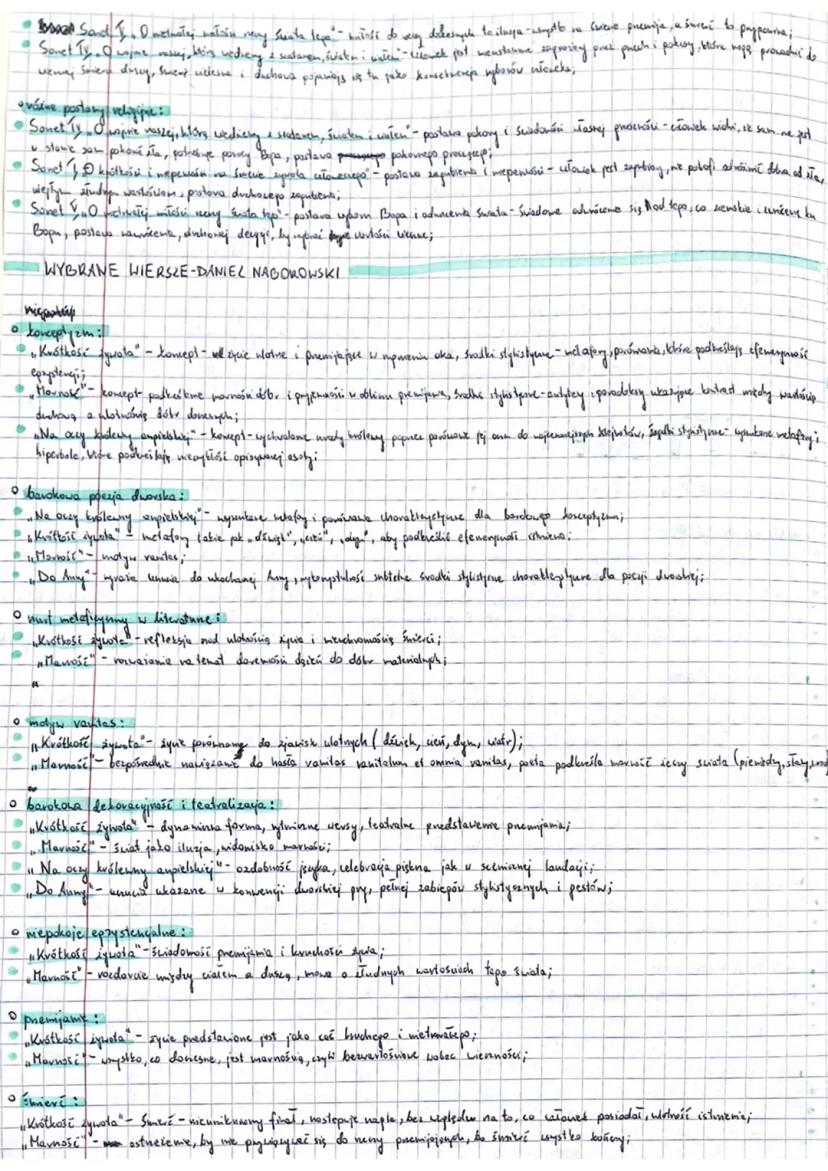 Sonet V „O nietrwałej miłości rzeczy świata tego" - miłość do rzeczy doczesnych to iluzja - wszystko na świecie przemija, a śmierć to przypomina;
Sonet IV „O wojnie naszej, którą wiedziemy z szatanem, światem i ciałem" - człowiek jest nieustannie zaproszony przez grzech i pokusy, które mogą prowadzić do
wiecznej śmierci duszy, śmierć cielesna i duchowa pojawiają się tu jako konsekwencja wyborów człowieka;
różne postawy religijne:
Sonet IV „O wojnie naszej, którą wiedziemy z szatanem, światem i ciałem" - postawa pokory i świadomości własnej grzeszności - człowiek widzi, że sam nie jest
w stanie sam pokonać zła, potrzebuje pomocy Boga, postawa pokornego proszącego;
Sonet I „O krótkości i niepewności na świecie żywota człowieczego" - postawa zagubienia i niepewności - człowiek jest zagubiony, nie potrafi odróżnić dobra od zła,
ulegając złudnym wartościom, postawa duchowego zagubienia;
Sonet V „O nietrwałej miłości rzeczy świata tego" - postawa wyboru Boga i odrzucenia świata - świadome odwrócenie się od tego, co ziemskie i zwrócenie ku
Bogu, postawa nawrócenia, duchowej decyzji, by wybrać wartości wieczne;
WYBRANE WIERSZE - DANIEL NABOROWSKI
konceptyzm:
„Krótkość żywota" - koncept - życie ulotne i przemijające w mgnieniu oka, środki stylistyczne - metafory, porównania, które podkreślają efemeryczność
egzystencji;
„Marność" - koncept - marności dóbr i przyjemności w obliczu przemijania, środki stylistyczne - antytezy i paradoksy ukazujące kontrast między wartością
duchową a ulotnością dóbr doczesnych;
„Na oczy królewny angielskiej" - koncept - wychwalanie urody królewny poprzez porównanie jej oczu do najcenniejszych klejnotów, środki stylistyczne - wyszukane metafory i
hiperbole, które podkreślają niezwykłość opisywanej osoby;
barokowa poezja dworska:
„Na oczy królewny angielskiej" - wyszukane metafory i porównania charakterystyczne dla barokowego konceptyzmu;
„Krótkość żywota" - metafory takie jak „dźwięk", „cień", „dym", aby podkreślić efemeryczność istnienia;
„Marność" - motyw vanitas;
„Do Anny" - wyraża uczucia do ukochanej Anny, wykorzystując subtelne środki stylistyczne charakterystyczne dla poezji dworskiej;
nurt metafizyczny w literaturze:
„Krótkość żywota" - refleksja nad ulotnością życia i nieuchronnością śmierci;
„Marność" - rozważania na temat daremności dążeń do dóbr materialnych;
motyw vanitas:
„Krótkość żywota" - życie porównane do zjawisk ulotnych (dźwięk, cień, dym, wiatr);
„Marność" - bezpośrednie nawiązanie do hasła vanitas vanitatum et omnia vanitas, poeta podkreśla marność rzeczy świata (pieniądze, sławy,
barokowa dekoracyjność i teatralizacja:
„Krótkość żywota" - dynamiczna forma, rytmiczne wersy, teatralne przedstawienie przemijania;
„Marność" - świat jako iluzja, widowisko marności;
„Na oczy królewny angielskiej" - ozdobność języka, celebracja piękna jak w scenicznej laudacji;
„Do Anny" - uczucia ukazane w konwencji dworskiej gry, pełnej zabiegów stylistycznych i gestów;
niepokoje egzystencjalne:
„Krótkość żywota" - świadomość przemijania i kruchości życia;
„Marność" - rozdarcie między ciałem a duszą, mowa o złudnych wartościach tego świata;
przemijanie:
„Krótkość żywota" - życie przedstawione jest jako coś kruchego i nietrwałego;
„Marność" - wszystko, co doczesne, jest marnością, czyli bezwartościowe wobec wieczności;
śmierć:
„Krótkość żywota" - śmierć - nieunikniony finał, następuje nagle, bez względu na to, co człowiek posiadał, ulotność istnienia;
„Marność" - ostrzeżenie, by nie przywiązywać się do rzeczy przemijających, bo śmierć wszystko kończy;